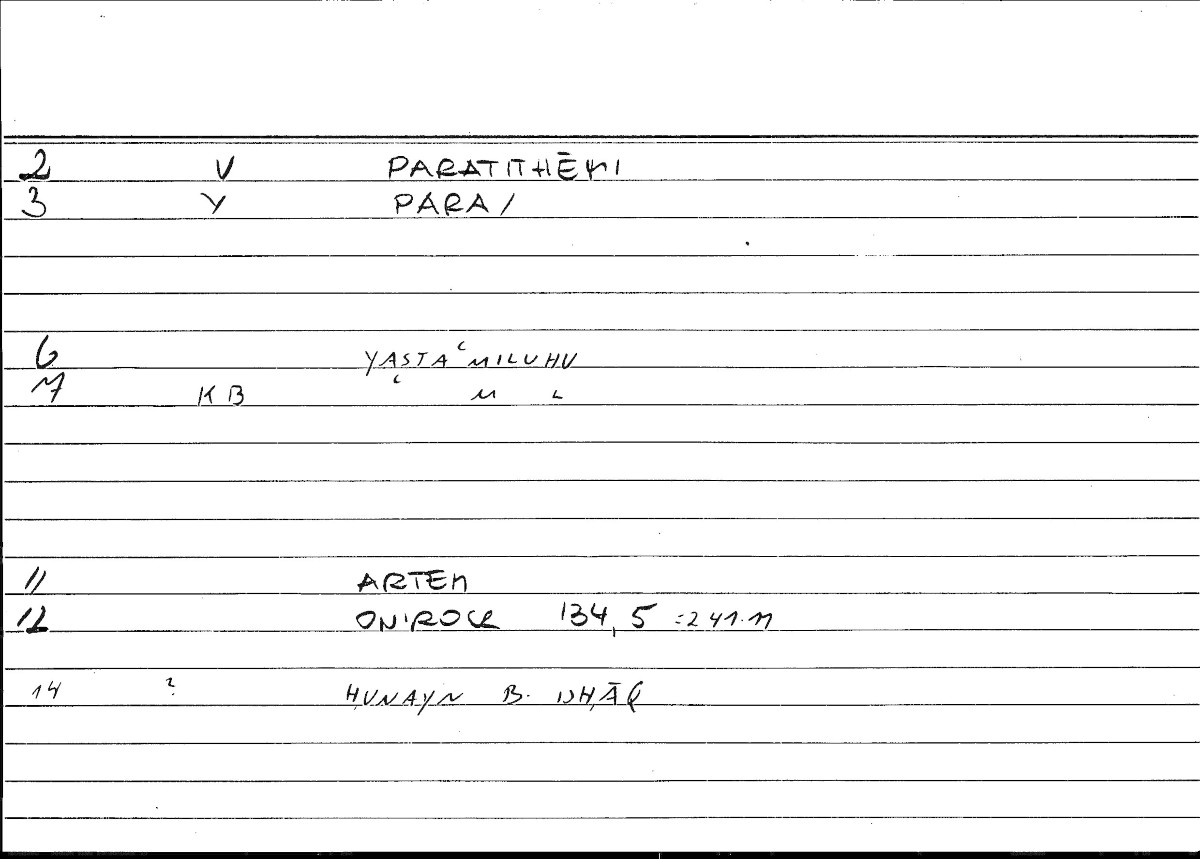 2 V PARATITHĒMI
3 Y PARA/
6 YASTAʿMILUHU
7 KB ʿ M L
11 ARTEM
12 ONIROCR 134, 5 =241.11
14 ? ḤUNAYN B. ISḤĀQ